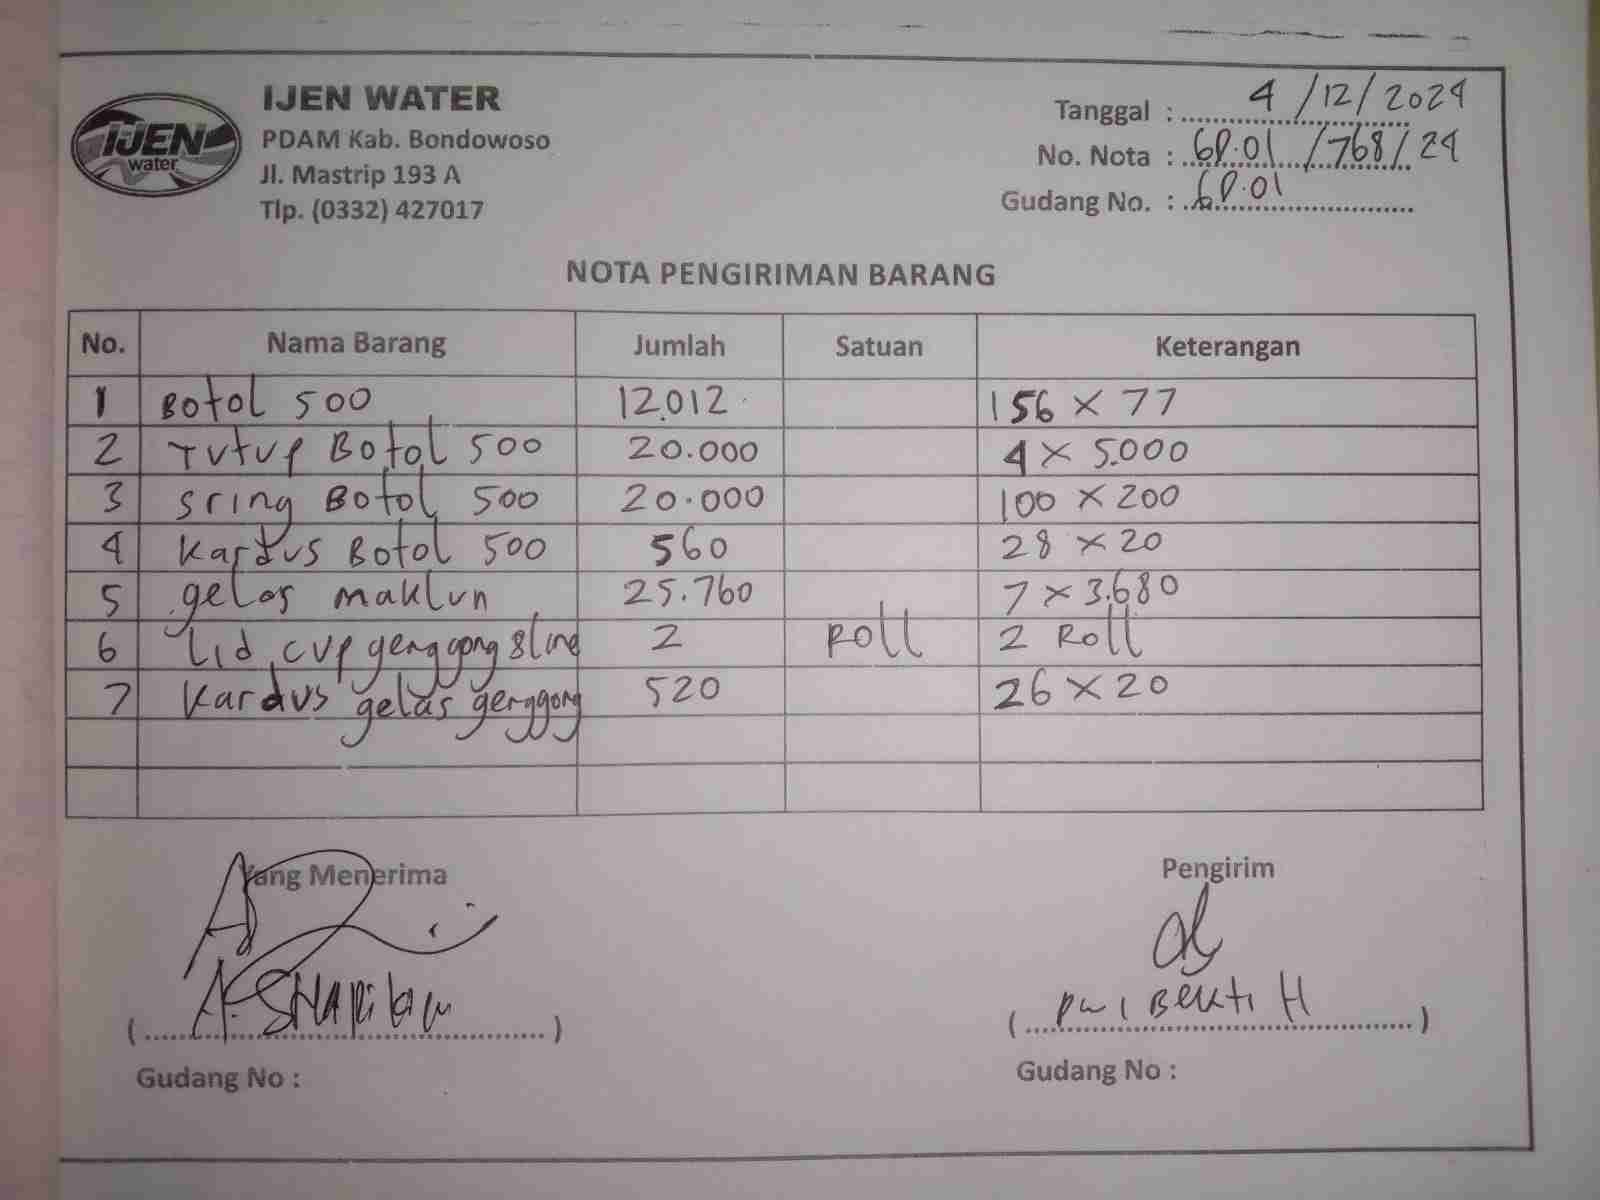 IJEN
water
IJEN WATER
PDAM Kab. Bondowoso
Jl. Mastrip 193 A
Tlp. (0332) 427017
Tanggal : 4/12/2024
No. Nota : GP.01/768/24
Gudang No. : GP.01
NOTA PENGIRIMAN BARANG
No. Nama Barang Jumlah Satuan Keterangan
1 Botol 500 12.012 156 x 77
2 Tutup Botol 500 20.000 4 x 5.000
3 Sring Botol 500 20.000 100 x 200
4 Kardus Botol 500 560 28 x 20
5 gelas maklun 25.760 7 x 3.680
6 Lid cup genggong 8 line 2 Roll 2 Roll
7 Kardus gelas genggong 520 26 x 20
Yang Menerima Pengirim
(A.) (Dwi Bekti H)
Gudang No : Gudang No :